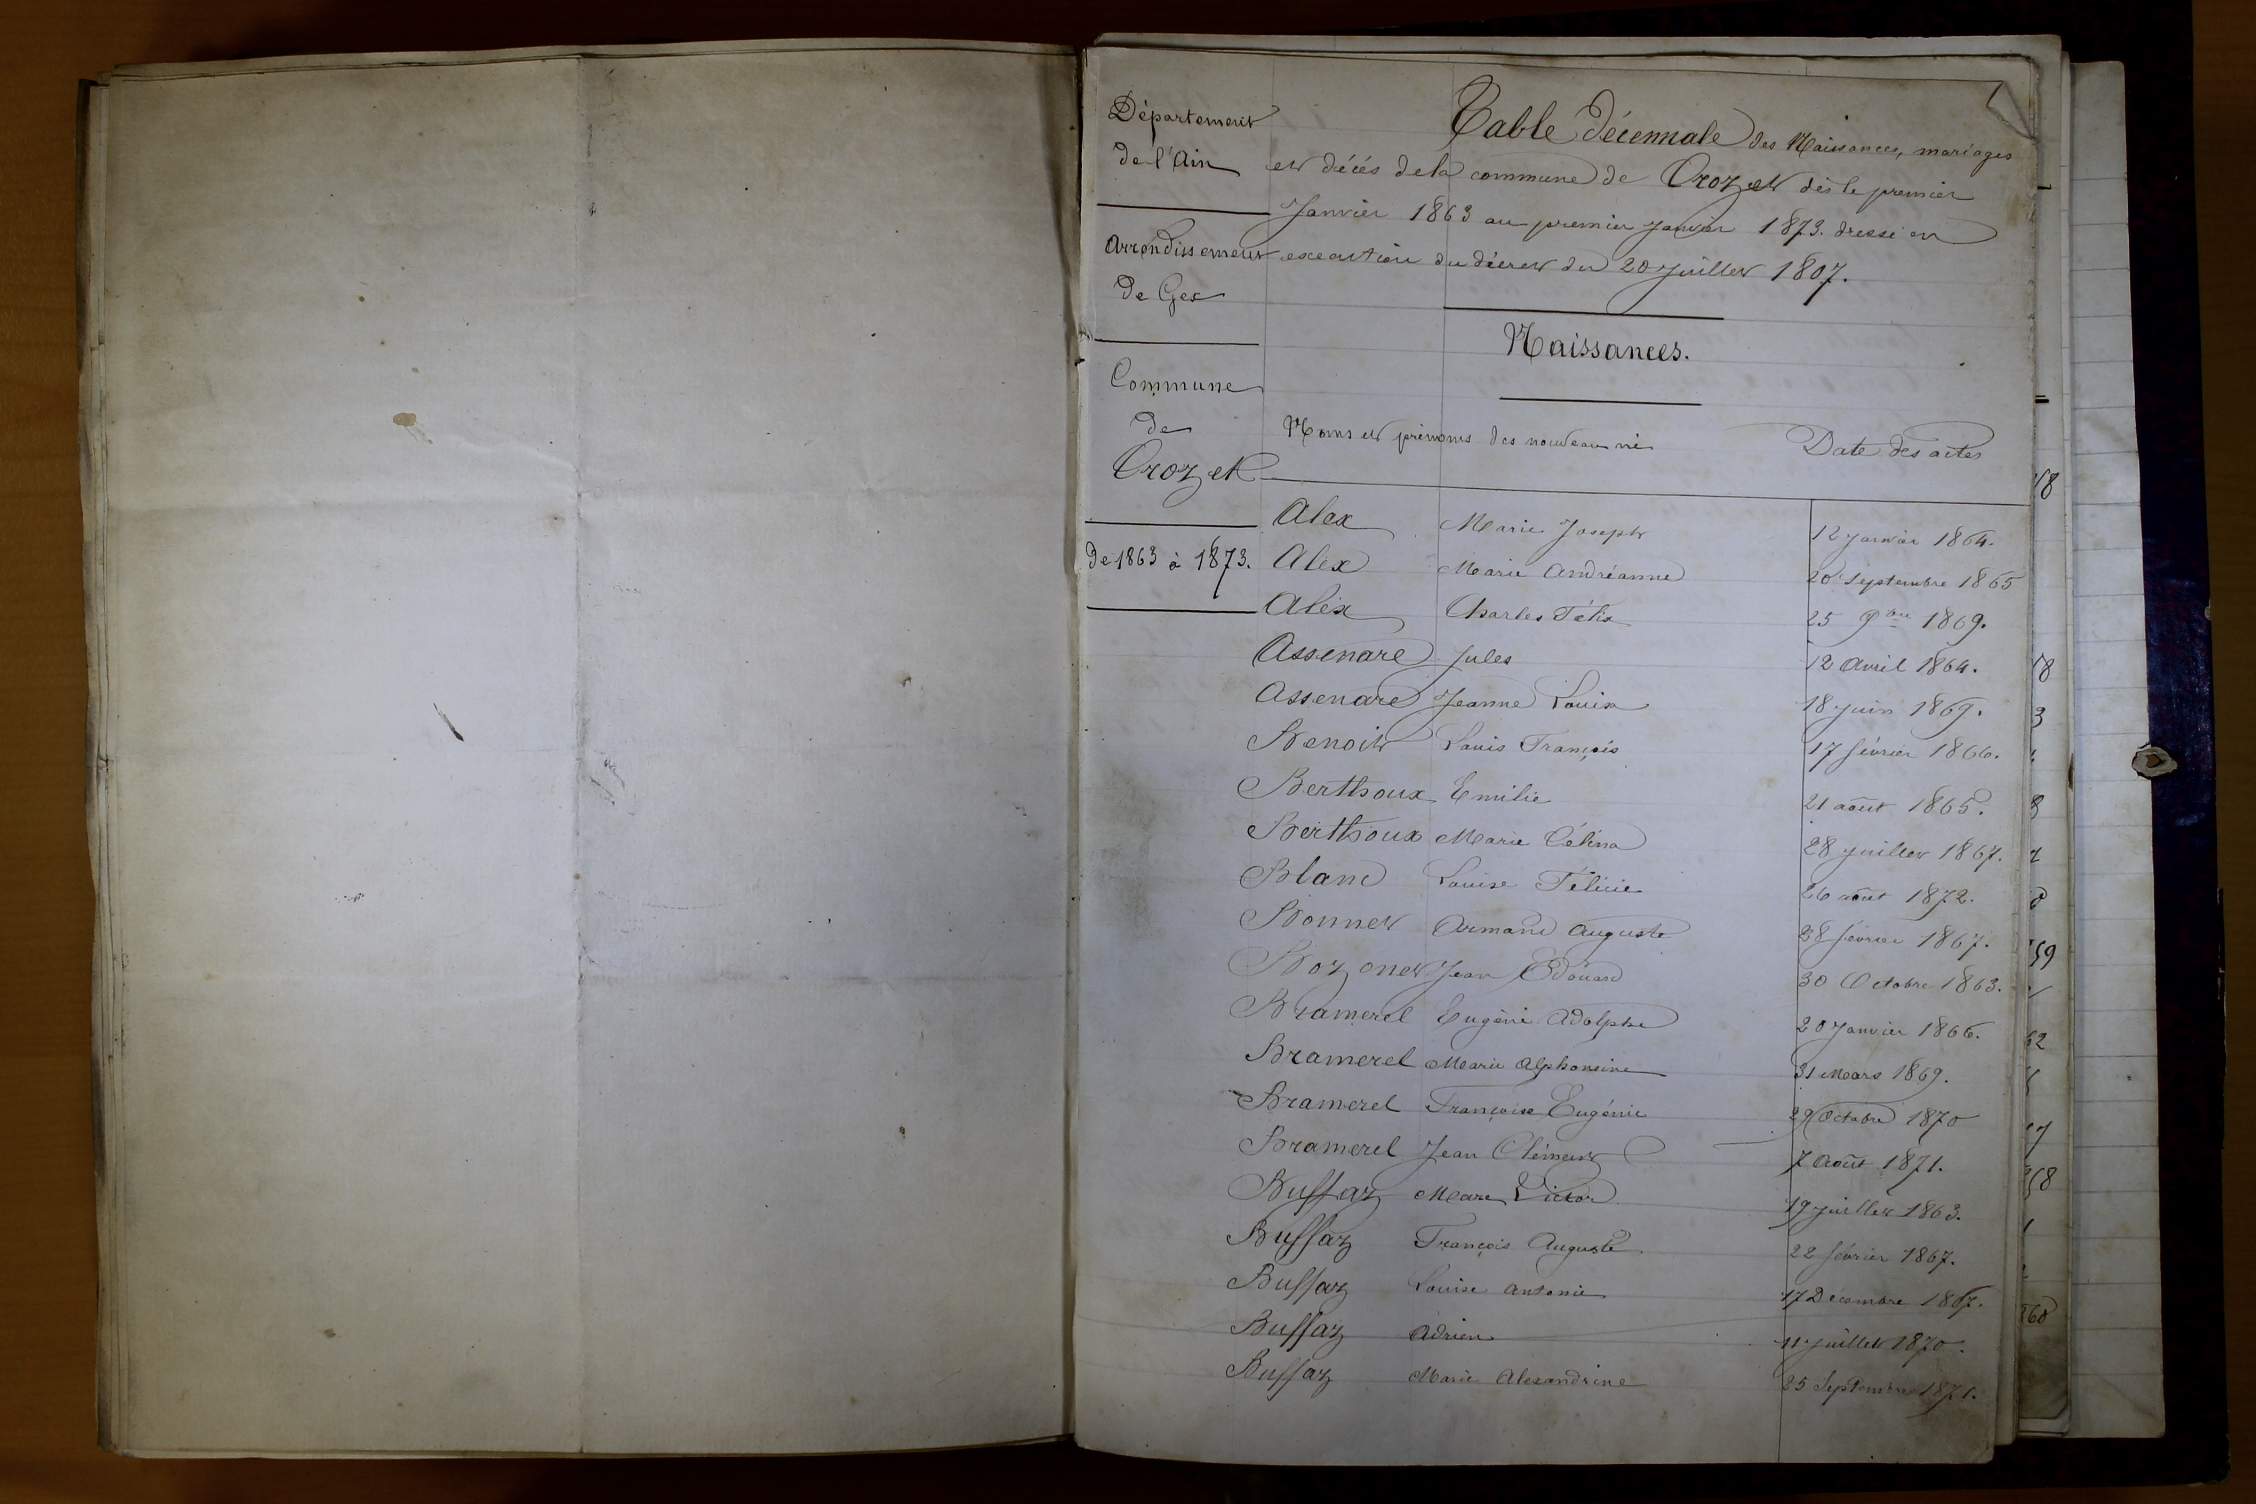 Département
de l'Ain
Arrondissement
de Gex
Commune
de
Crozet
De 1863 à 1873.
Table Décennale des Naissances, mariages
et décés de la commune de Crozet dès le premier
Janvier 1863 au premier Janvier 1873. dressé en
execution du décret du 20 Juillet 1807.
Naissances.
Noms et prénoms des nouveau né Date des actes
Alex Marie Joseph 12 janvier 1864.
Alex Marie Andréanne 20 Septembre 1865
Alex Charles Félix 25 9bre 1869.
Assenare Jules 12 Avril 1864.
Assenare Jeanne Louise 18 juin 1869.
Benoit Louis François 17 février 1866.
Berthoux Emilie 21 août 1865.
Berthoux Marie Célina 28 juillet 1867.
Blanc Louise Félicie 26 août 1872.
Bonnet Armand Auguste 28 février 1867.
Bozonet Jean Edouard 30 Octobre 1863.
Bramerel Eugène Adolphe 20 Janvier 1866.
Bramerel Marie Alphonsine 31 Mars 1869.
Bramerel Françoise Eugénie 29 Octobre 1870
Bramerel Jean Clément 7 Août 1871.
Buffaz Marc Victor 19 juillet 1863.
Buffaz François Auguste 22 février 1867.
Buffaz Louise Antonie 17 Décembre 1867.
Buffaz Adrien 11 juillet 1870.
Buffaz Marie Alexandrine 25 Septembre 1871.